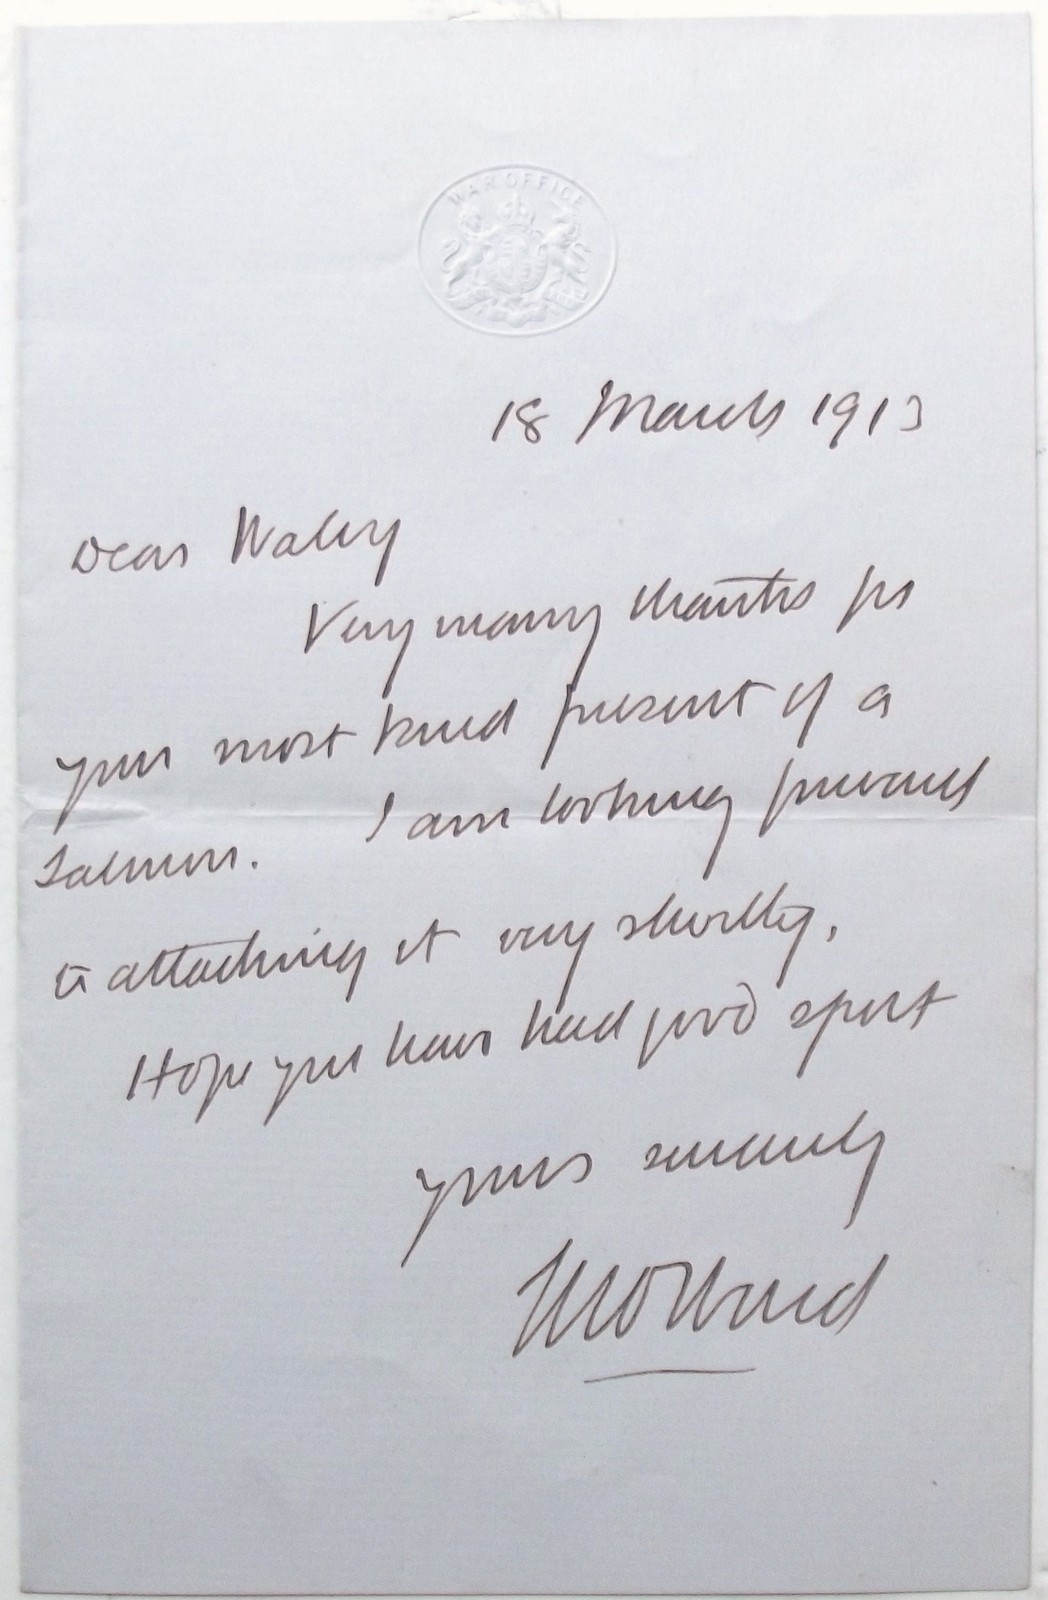 WAR OFFICE
18 March 1913
Dear Waley
Very many thanks for
your most kind present of a
Salmon. I am looking forward
to attacking it very shortly.
Hope you have had good sport
yours sincerely